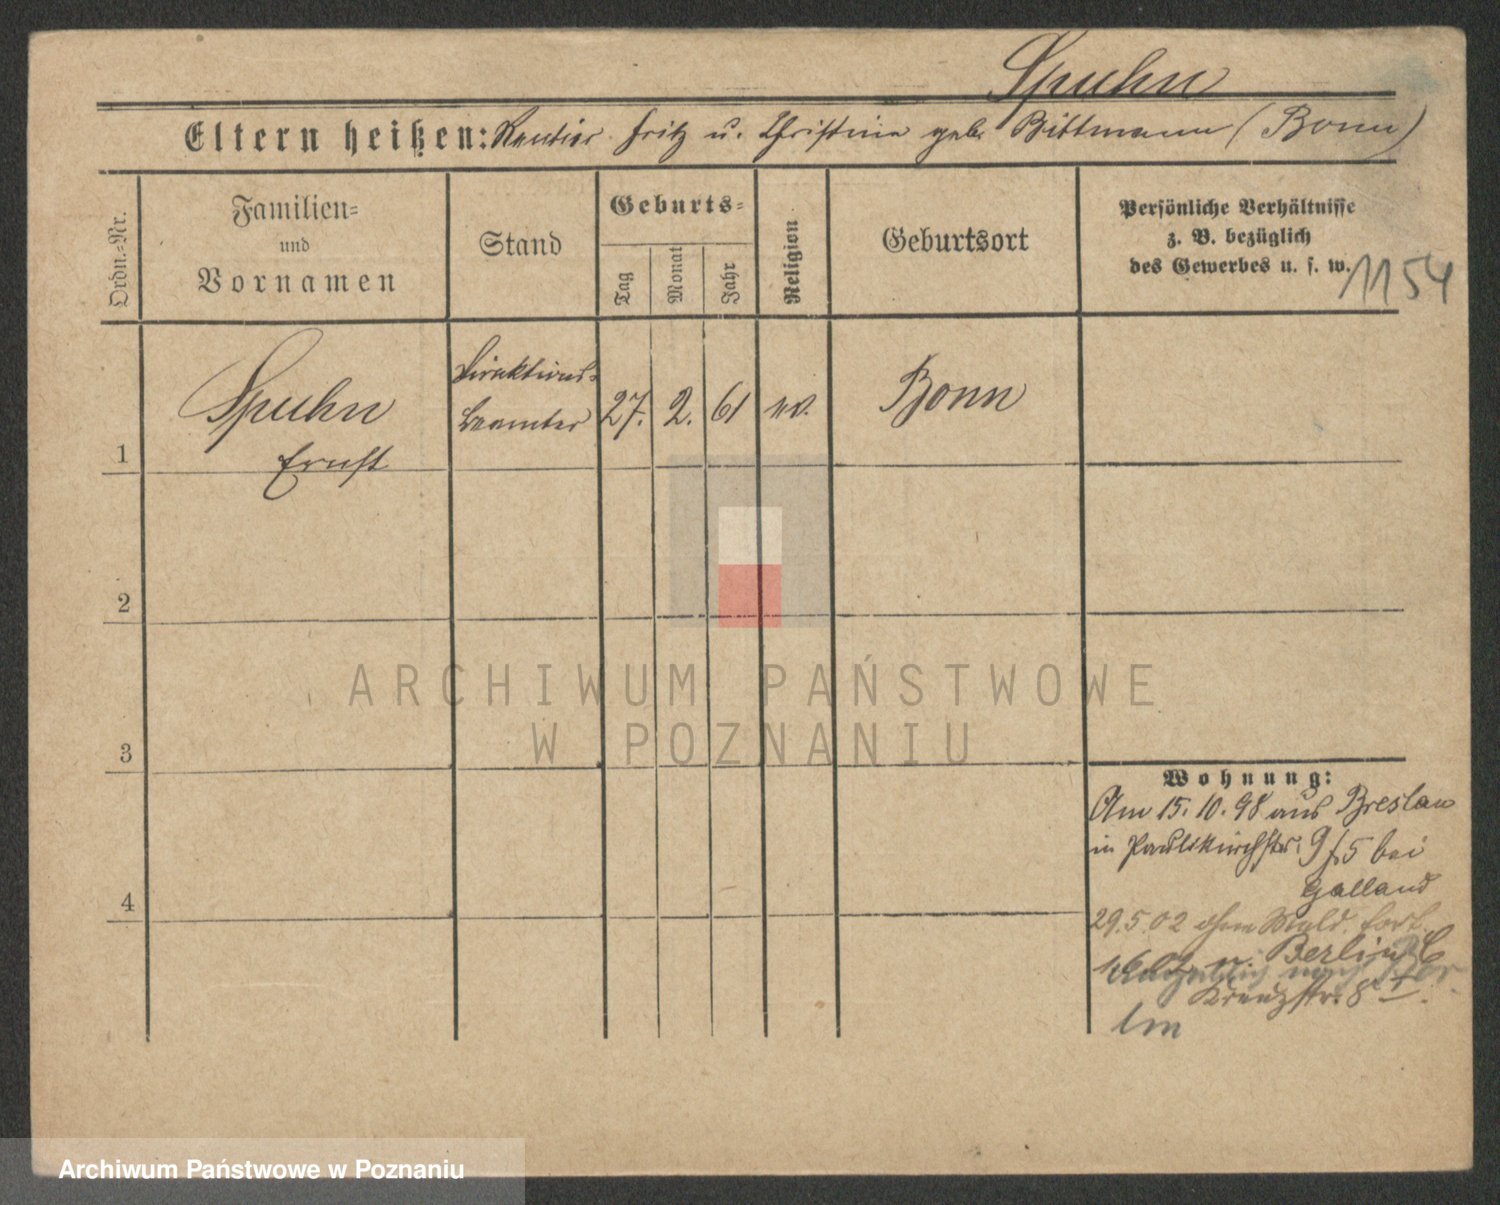 Spuhn
Eltern heißen: Rentier Fritz u. Christine geb. Bittmann (Bonn)
Ordn.-Nr.
Familien- und Vornamen
Stand
Geburts-
Tag
Monat
Jahr
Religion
Geburtsort
Persönliche Verhältnisse
z. B. bezüglich
des Gewerbes u. s. w.
1154
1
Spuhn
Ernst
Direktions-
beamter
27. 2. 61
Bonn
2
3
4
Wohnung:
Am 15. 10. 98 aus Breslau
in Paulikirchstr. 9 f. 5 bei
Galland
29.5.02 ohne Meld. fort.
n. Berlin
Kreuzstr. 8
ARCHIWUM PAŃSTWOWE
W POZNANIU
Archiwum Państwowe w Poznaniu